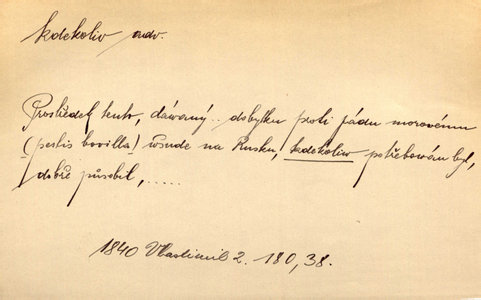 kdekoliv adv.
Prostředek tento, dáwaný .. dobytku proti pádu morovému
(pestis bovilla) wšude na Rusku, kdekoliw potřebován byl,
dobře působil, .....
1840 Vlastimil 2. 180, 38.